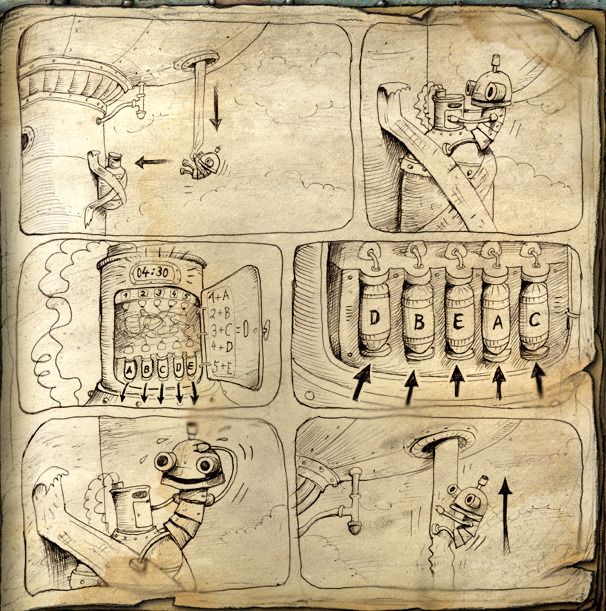 04:30
1 2 3 4 5
1+A
2+B
3+C = 0
4+D
5+E
A B C D E
D B E A C